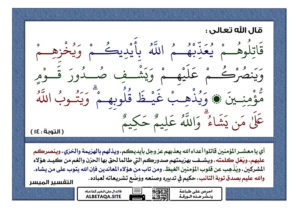 قال الله تعالى :
قَاتِلُوهُمْ يُعَذِّبْهُمُ اللَّهُ بِأَيْدِيكُمْ وَيُخْزِهِمْ
وَيَنصُرْكُمْ عَلَيْهِمْ وَيَشْفِ صُدُورَ قَوْمٍ
مُّؤْمِنِينَ ۞ وَيُذْهِبْ غَيْظَ قُلُوبِهِمْ ۗ وَيَتُوبُ اللَّهُ
عَلَىٰ مَن يَشَاءُ ۗ وَاللَّهُ عَلِيمٌ حَكِيمٌ
( التوبة : ١٤ )
يا معشر المؤمنين قاتلوا أعداء الله يعذبهم عز وجل بأيديكم، ويذلهم بالهزيمة والخزي، وينصركم
عليهم، ويُعْلِ كلمته، ويشف بهزيمتهم صدوركم التي طالما لحق بها الحزن والغم من كيد هؤلاء
المشركين، ويُذْهِب عن قلوب المؤمنين الغيظ. ومن تاب من هؤلاء المعاندين فإن الله يتوب على من يشاء.
والله عليم بصدق توبة التائب، حكيم في تدبيره وصنعه ووَضْع تشريعاته لعباده
التفسير الميسر
ALBETAQA.SITE